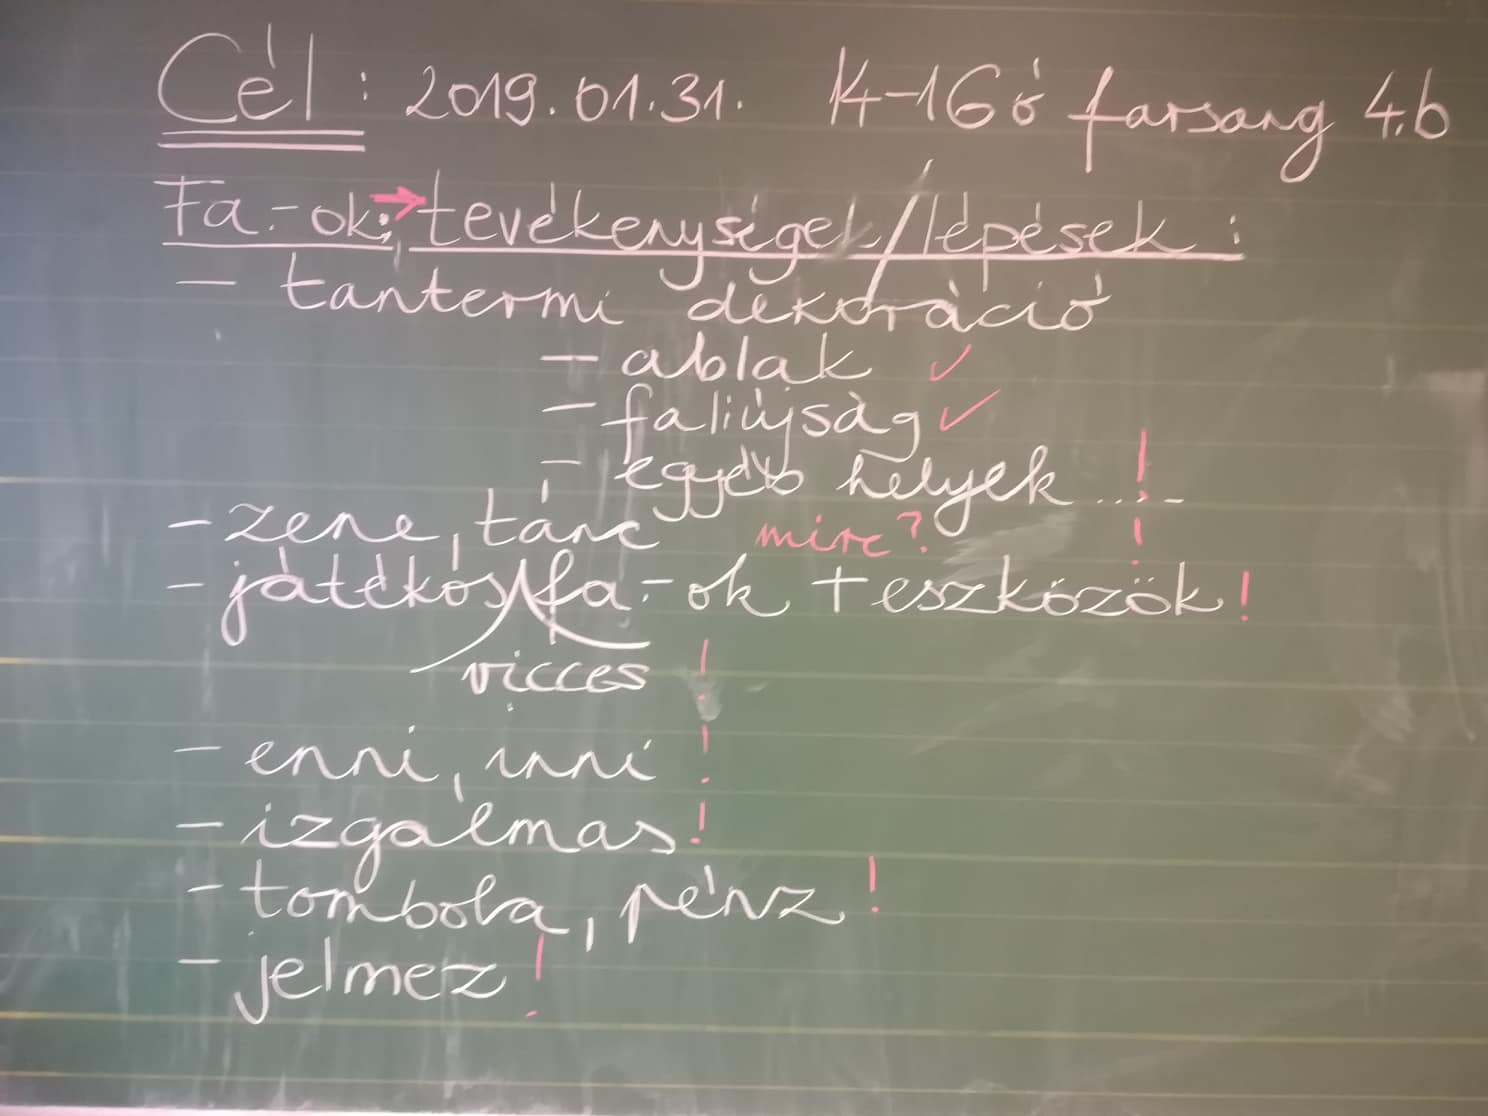 Cél: 2019.01.31. 14-16ó farsang 4.b
Fa.-ok; → tevékenységek/lépések:
- tantermi dekoráció
- ablak ✓
- faliújság ✓
- egyéb helyek...!
- zene, tánc mire? !
- játékos fa.-ok + eszközök!
vicces !
- enni, inni !
- izgalmas!
- tombola, pénz!
- jelmez!